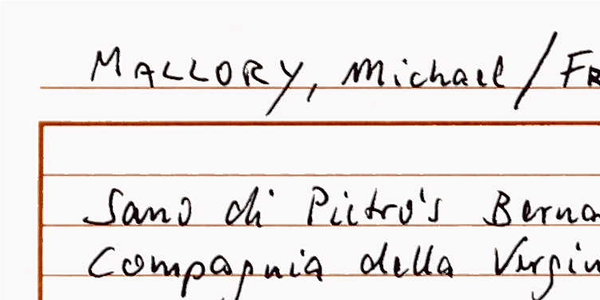 MALLORY, Michael/FR
Sano di Pietro's Berna
Compagnia della Virgin